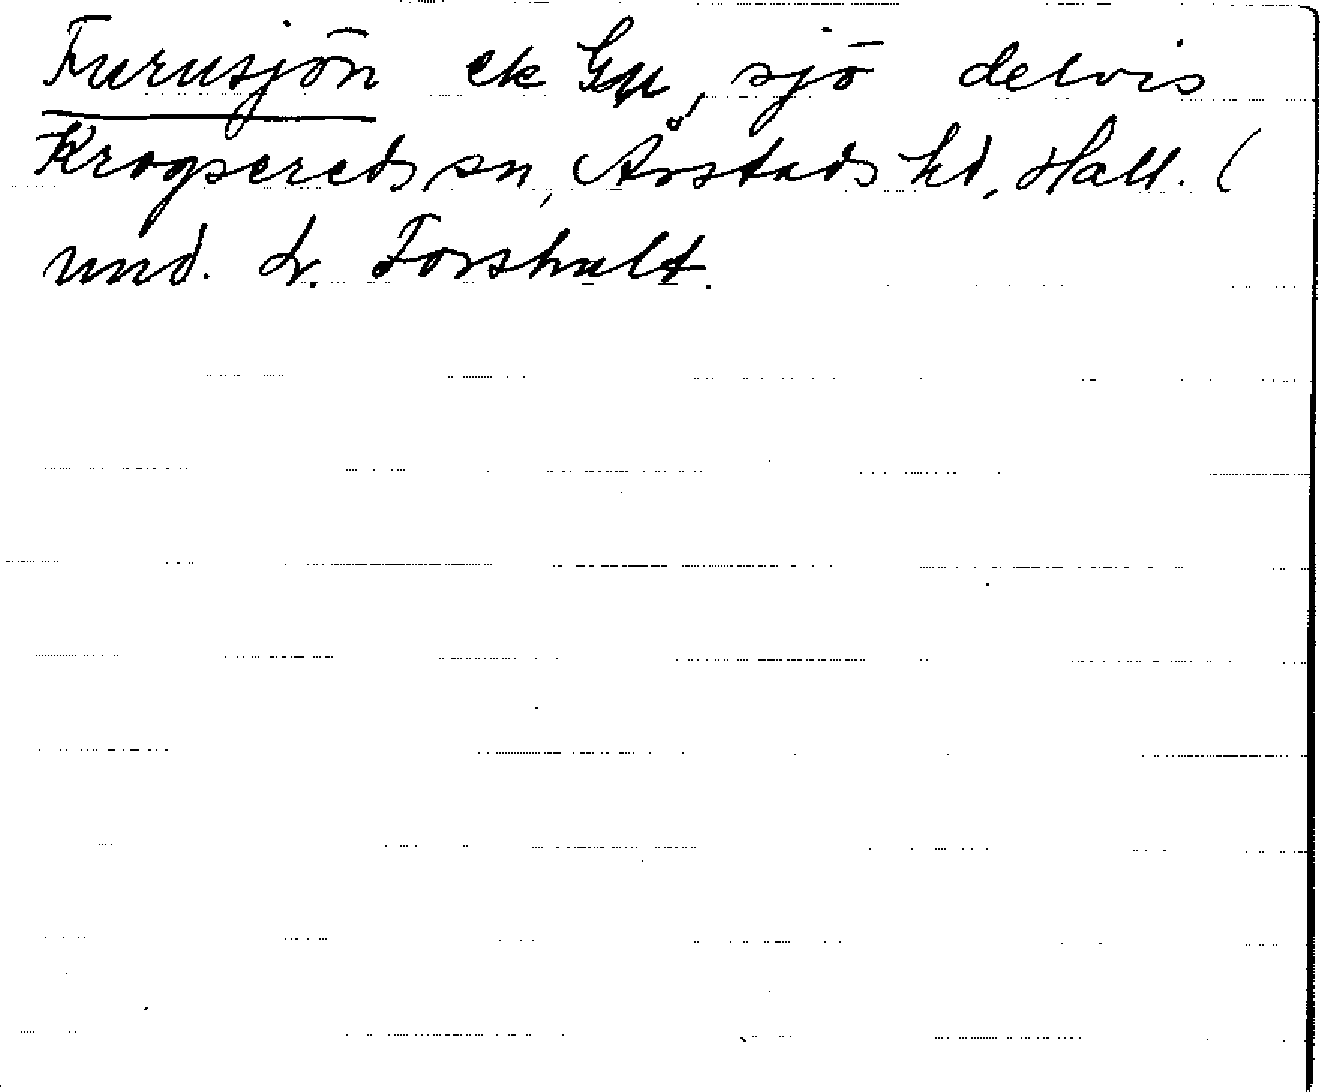 Furusjön ek Gu, sjö delvis
Krogsereds sn, Årstads hd, Hall. (
und. St. Forshult.